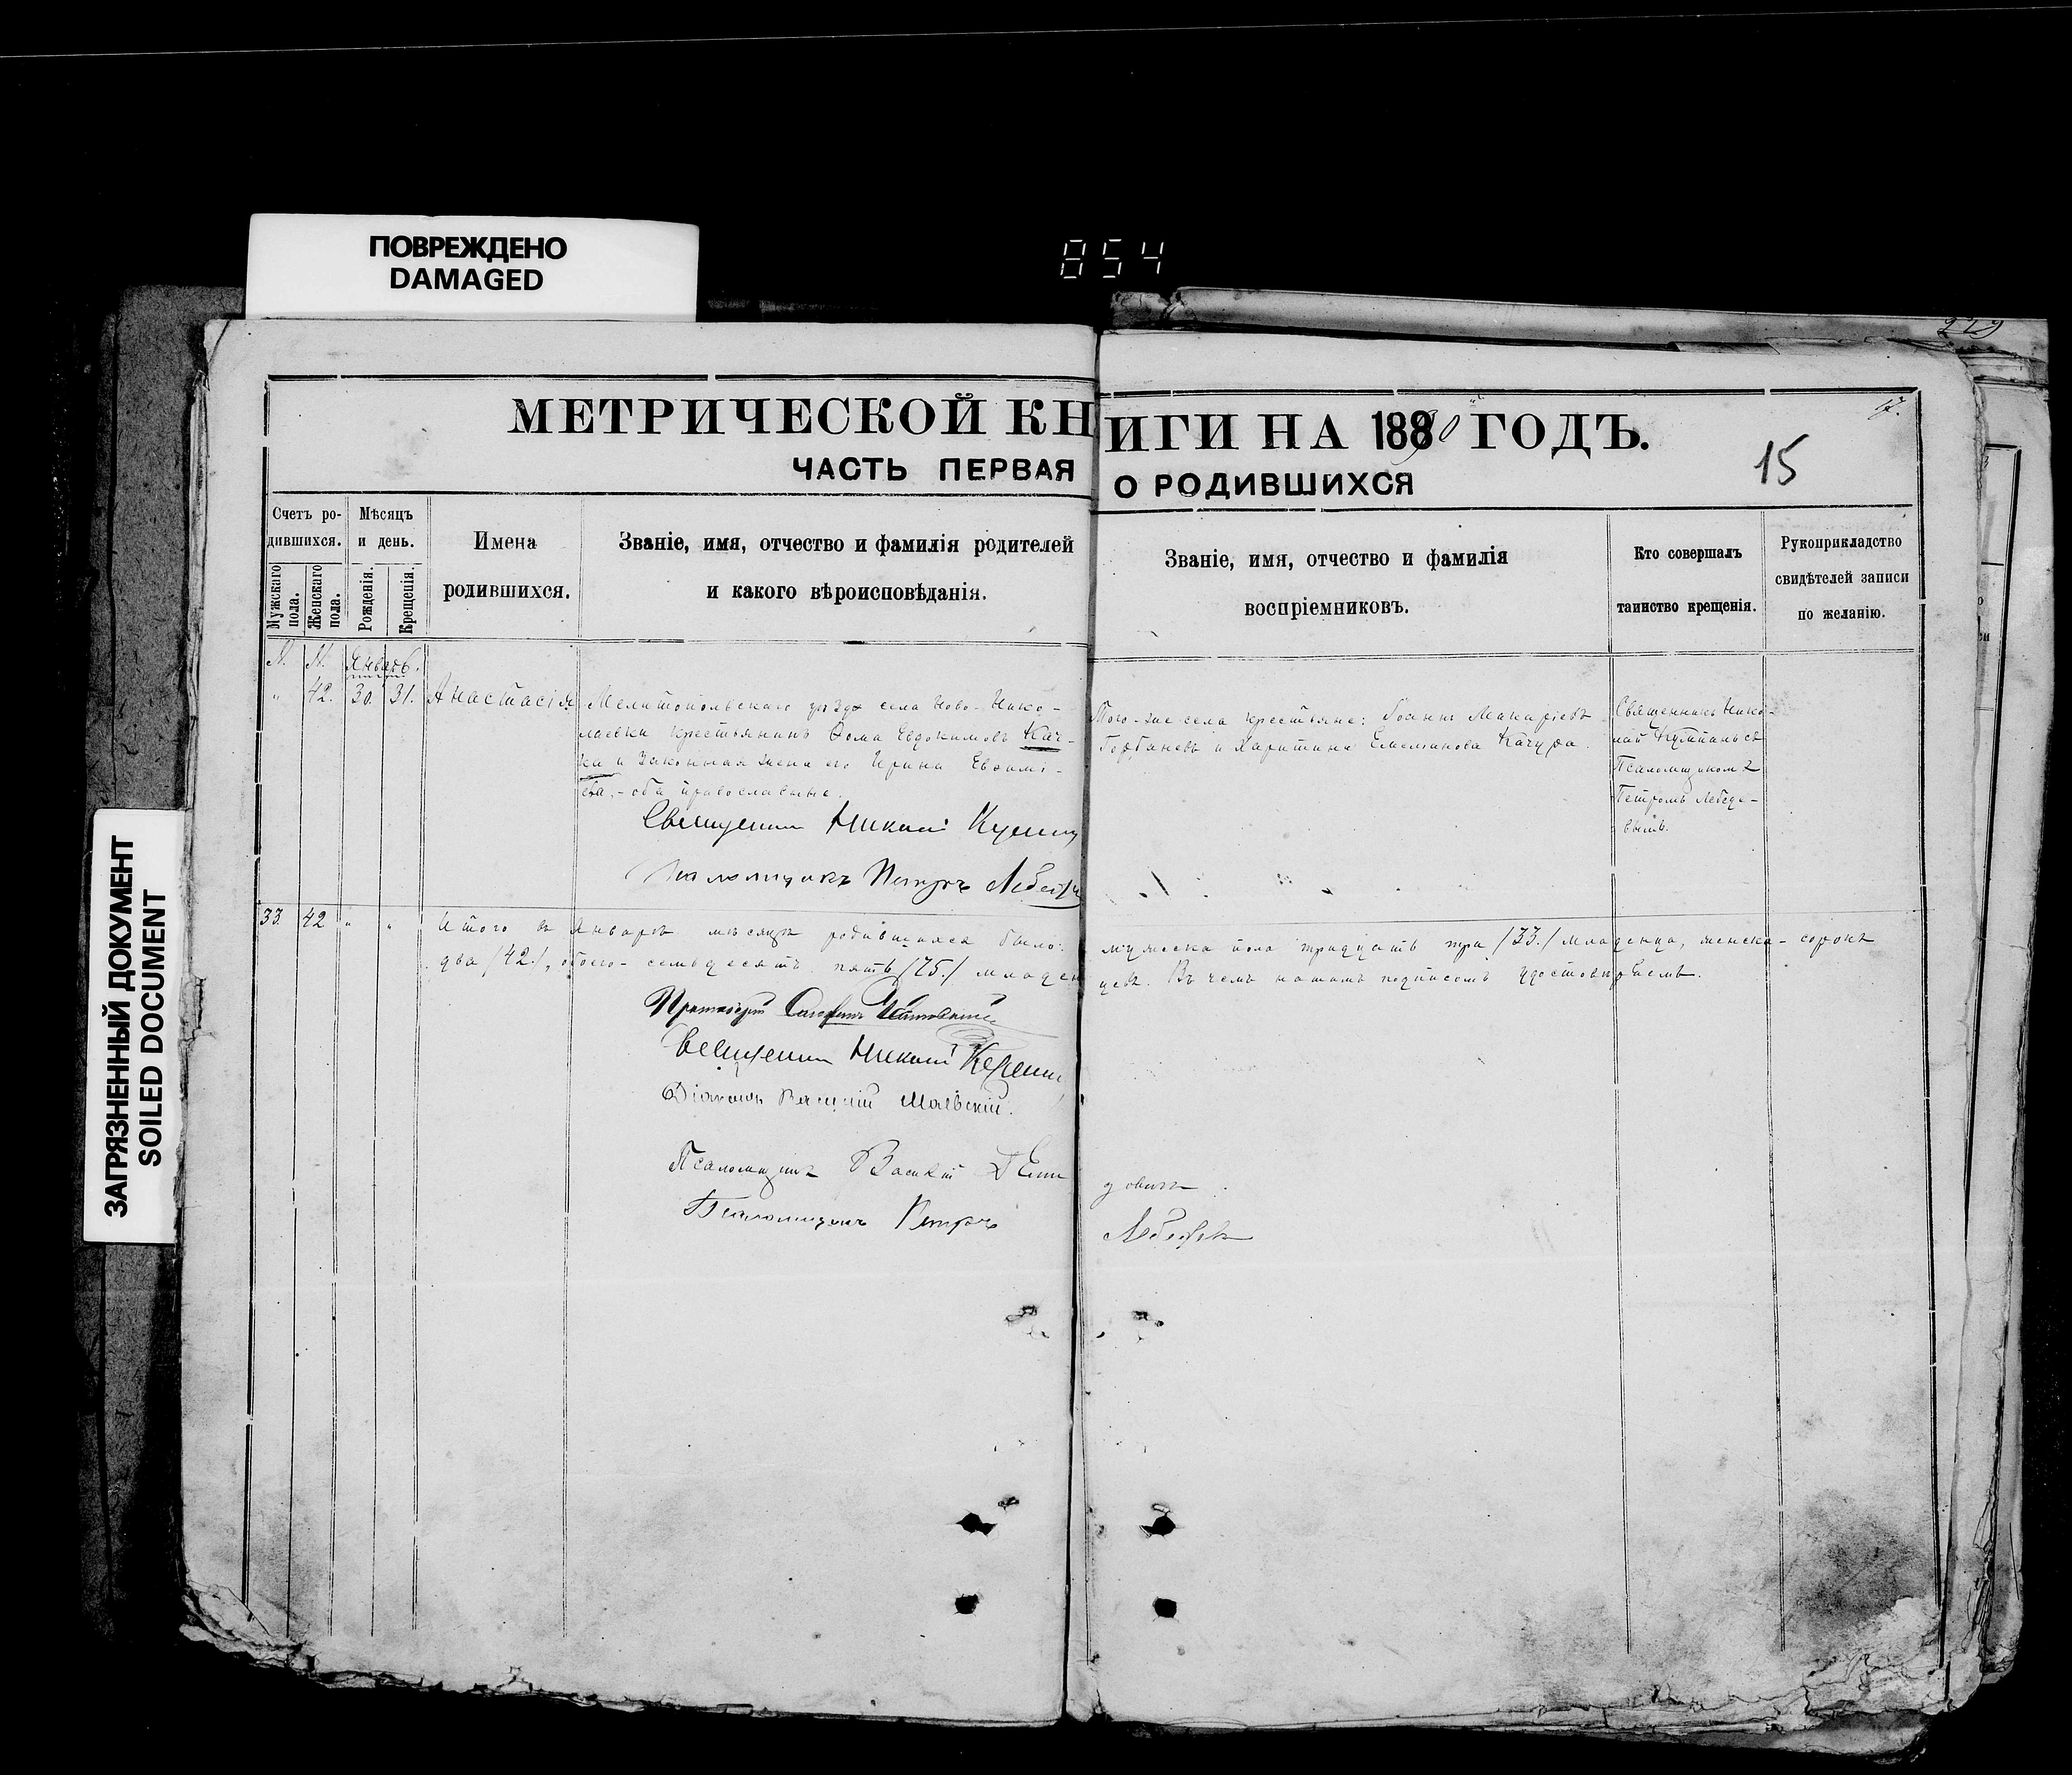 ПОВРЕЖДЕНО
DAMAGED
854
229
ЗАГРЯЗНЕННЫЙ ДОКУМЕНТ
SOILED DOCUMENT
МЕТРИЧЕСКОЙ КНИГИ НА 1890 ГОДЪ.
15
ЧАСТЬ ПЕРВАЯ О РОДИВШИХСЯ
Счетъ ро-
дившихся.
Мужскаго пола.
Женскаго пола.
Мѣсяцъ
и день.
Рожденія.
Крещенія.
Имена
родившихся.
Званіе, имя, отчество и фамилія родителей
и какого вѣроисповѣданія.
Званіе, имя, отчество и фамилія
воспріемниковъ.
Кто совершалъ
таинство крещенія.
Рукоприкладство
свидѣтелей записи
по желанію.
Январь.
" 42. 30. 31. Анастасія
Мелитопольскаго уѣзда села Ново-Нико-
лаевки крестьянинъ Ѳома Евдокимовъ Кач-
ка и законная жена его Ирина Евѳимі-
ева, - оба православные.
Того-же села крестьяне: Іоаннъ Макаріевъ
Горбаневъ и Харитина Емельянова Качура.
Священникъ Нико-
лай
Псаломщикомъ
Петромъ Лебеде-
вымъ.
Священникъ Николай
Псаломщикъ Петръ Лебедевъ
33. 42 " " Итого въ Январѣ мѣсяцѣ родившихся было: мужеска пола тридцать три /33./ младенца, женска - сорокъ
два /42./, обоего - семьдесятъ пять /75./ младенцевъ. Въ чемъ нашимъ подписомъ удостовѣряемъ.
Протоіерей
Священникъ Николай
Діаконъ Василій Маевскій.
Псаломщикъ Василій
Псаломщикъ Петръ Лебедевъ